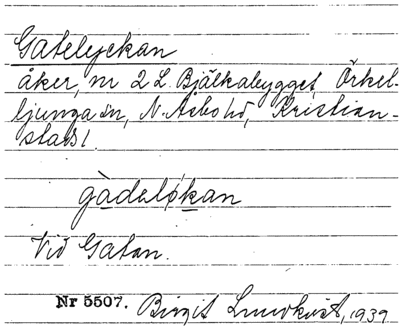 Gatelyckan
åker, nr 2 L. Bjälkabygget, Örkel-
ljunga sn, N. Åsbo hd, Kristian-
stads l.
gàdeløkan
Vid Gatan.
Nr 5507. Birgit Lundkvist, 1939